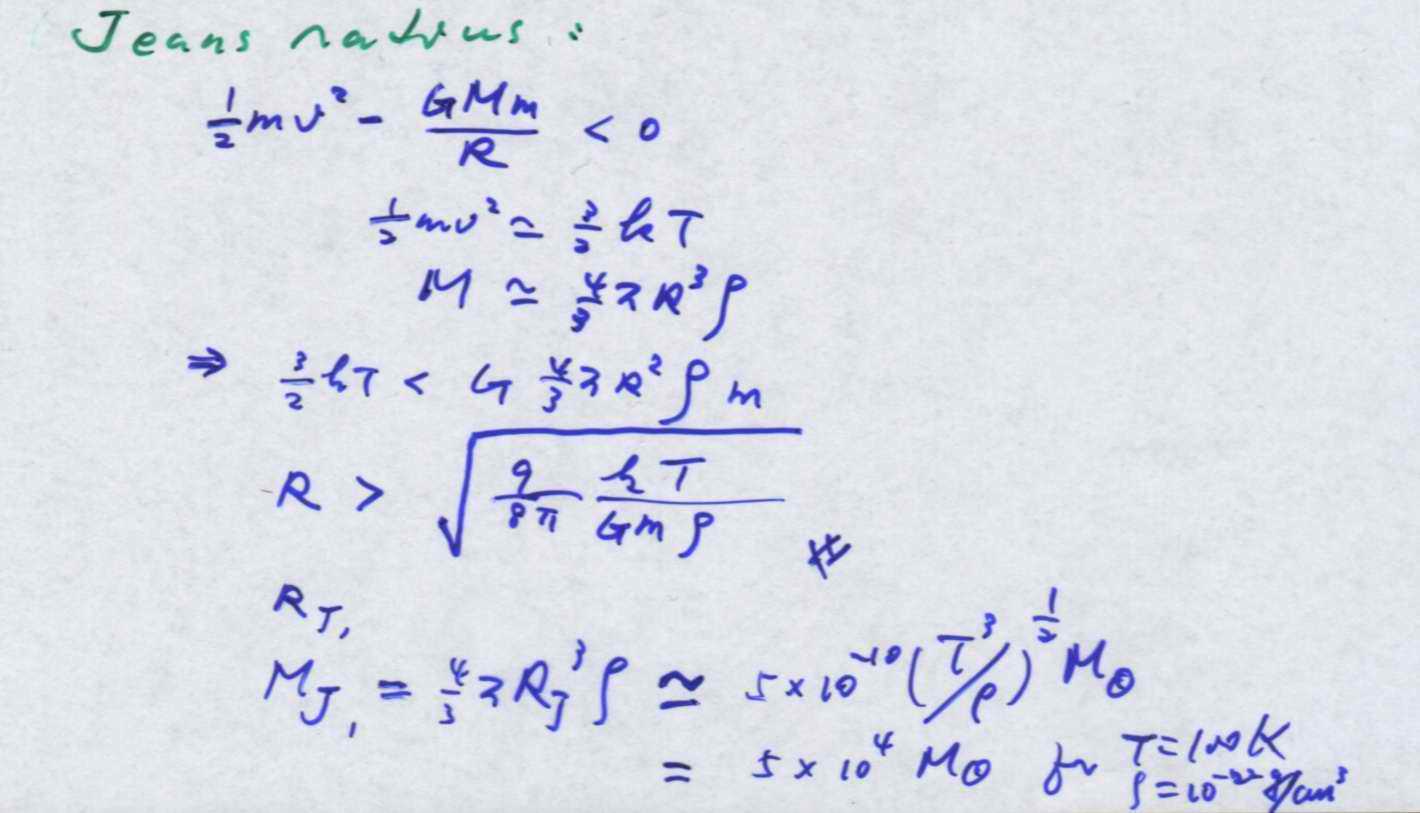 Jeans radius :
½mv² - GMm/R < 0
½mv² ≃ 3/2 kT
M ≃ 4/3 π R³ ρ
⇒ 3/2 kT < G 4/3 π R² ρ m
R > √(9/8π kT/Gmρ) #
R_J,
M_J, = 4/3 π R_J³ ρ ≃ 5 × 10⁻¹⁰ (T³/ρ)^½ M⊙
= 5 × 10⁴ M⊙ for T = 100K
ρ = 10⁻²² g/cm³